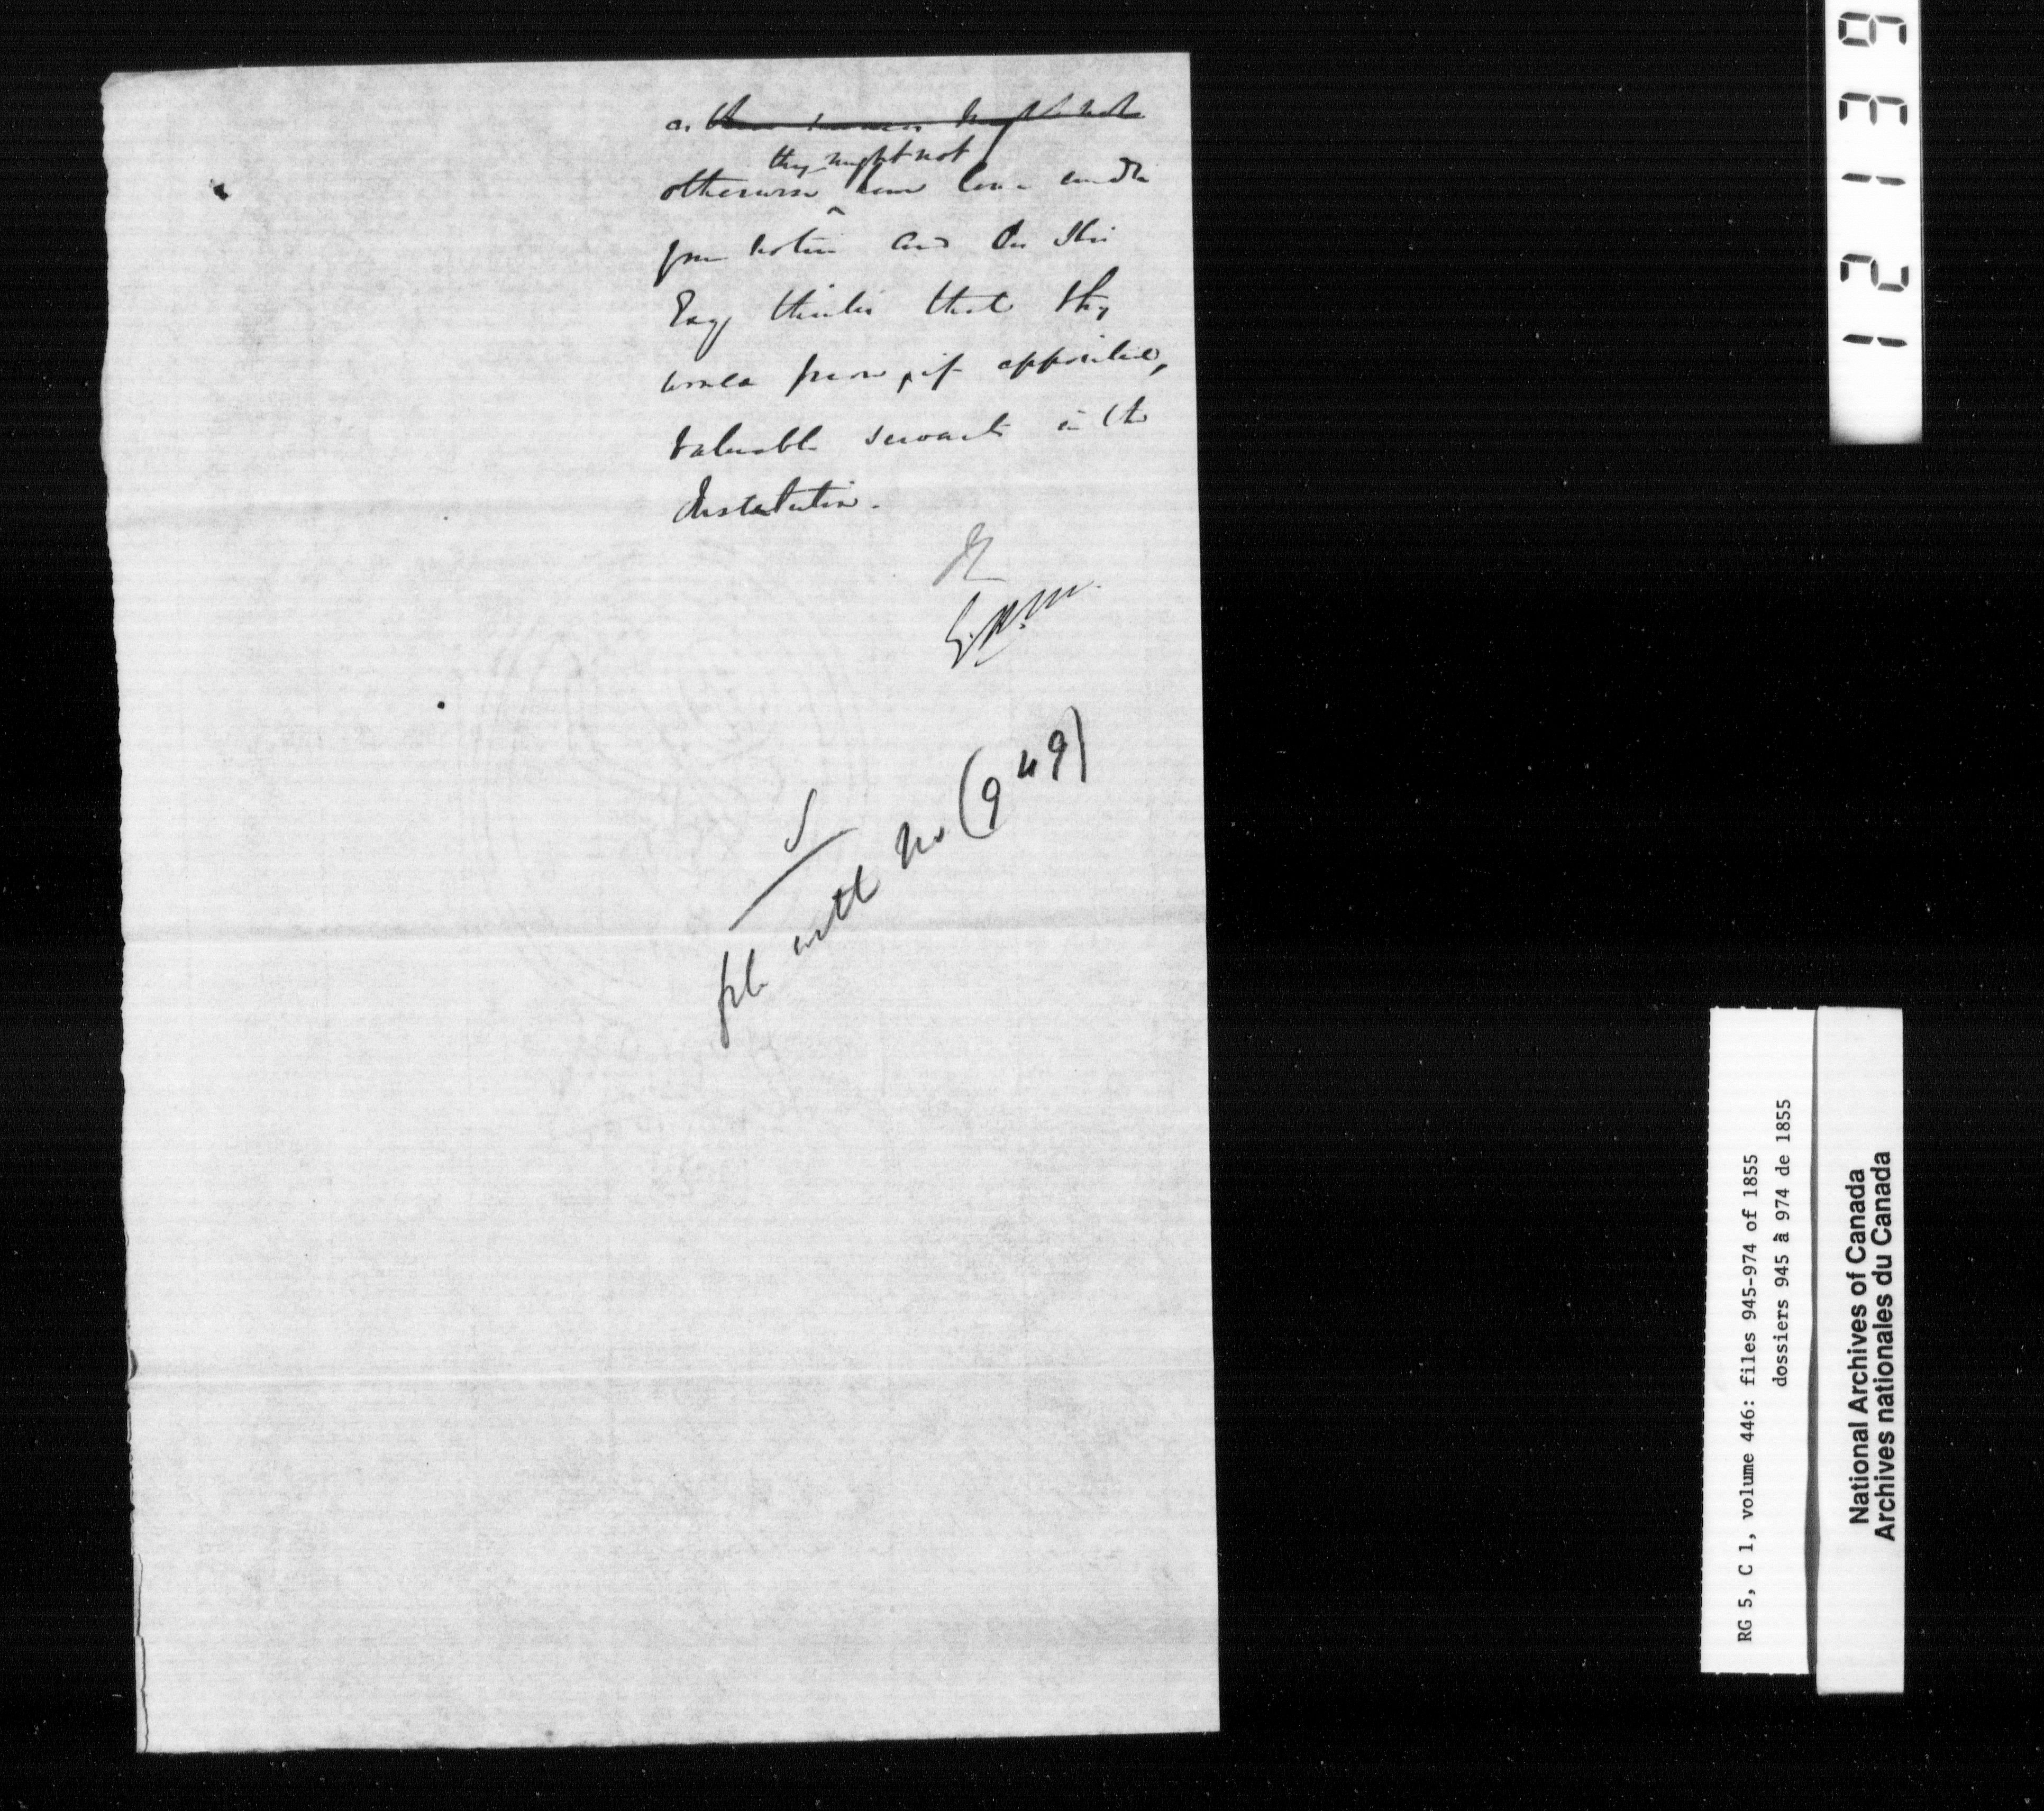 as
they might not
otherwise have come under
your notice and On His
Excy thinks that they
would prove, if appointed,
valuable servants in the
Institution.
file with No (949)
12139
RG 5, C 1, volume 446: files 945-974 of 1855
dossiers 945 à 974 de 1855
National Archives of Canada
Archives nationales du Canada